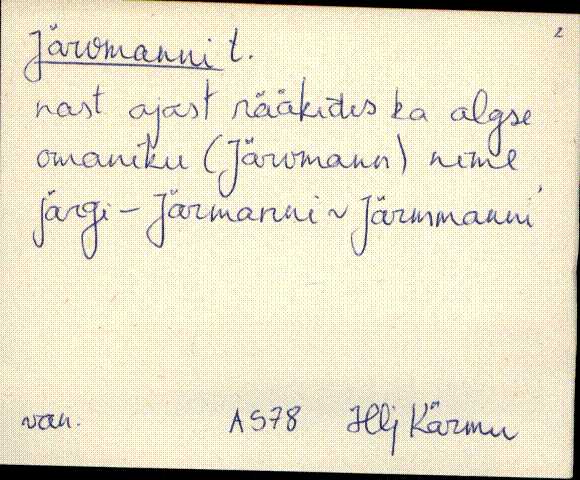 2
Järvmanni t.
nast ajast rääkides ka algse
omaniku (Järvmann) nime
järgi – Järmanni ~ Järmmanni
van. AS78 Hlj Kärmu